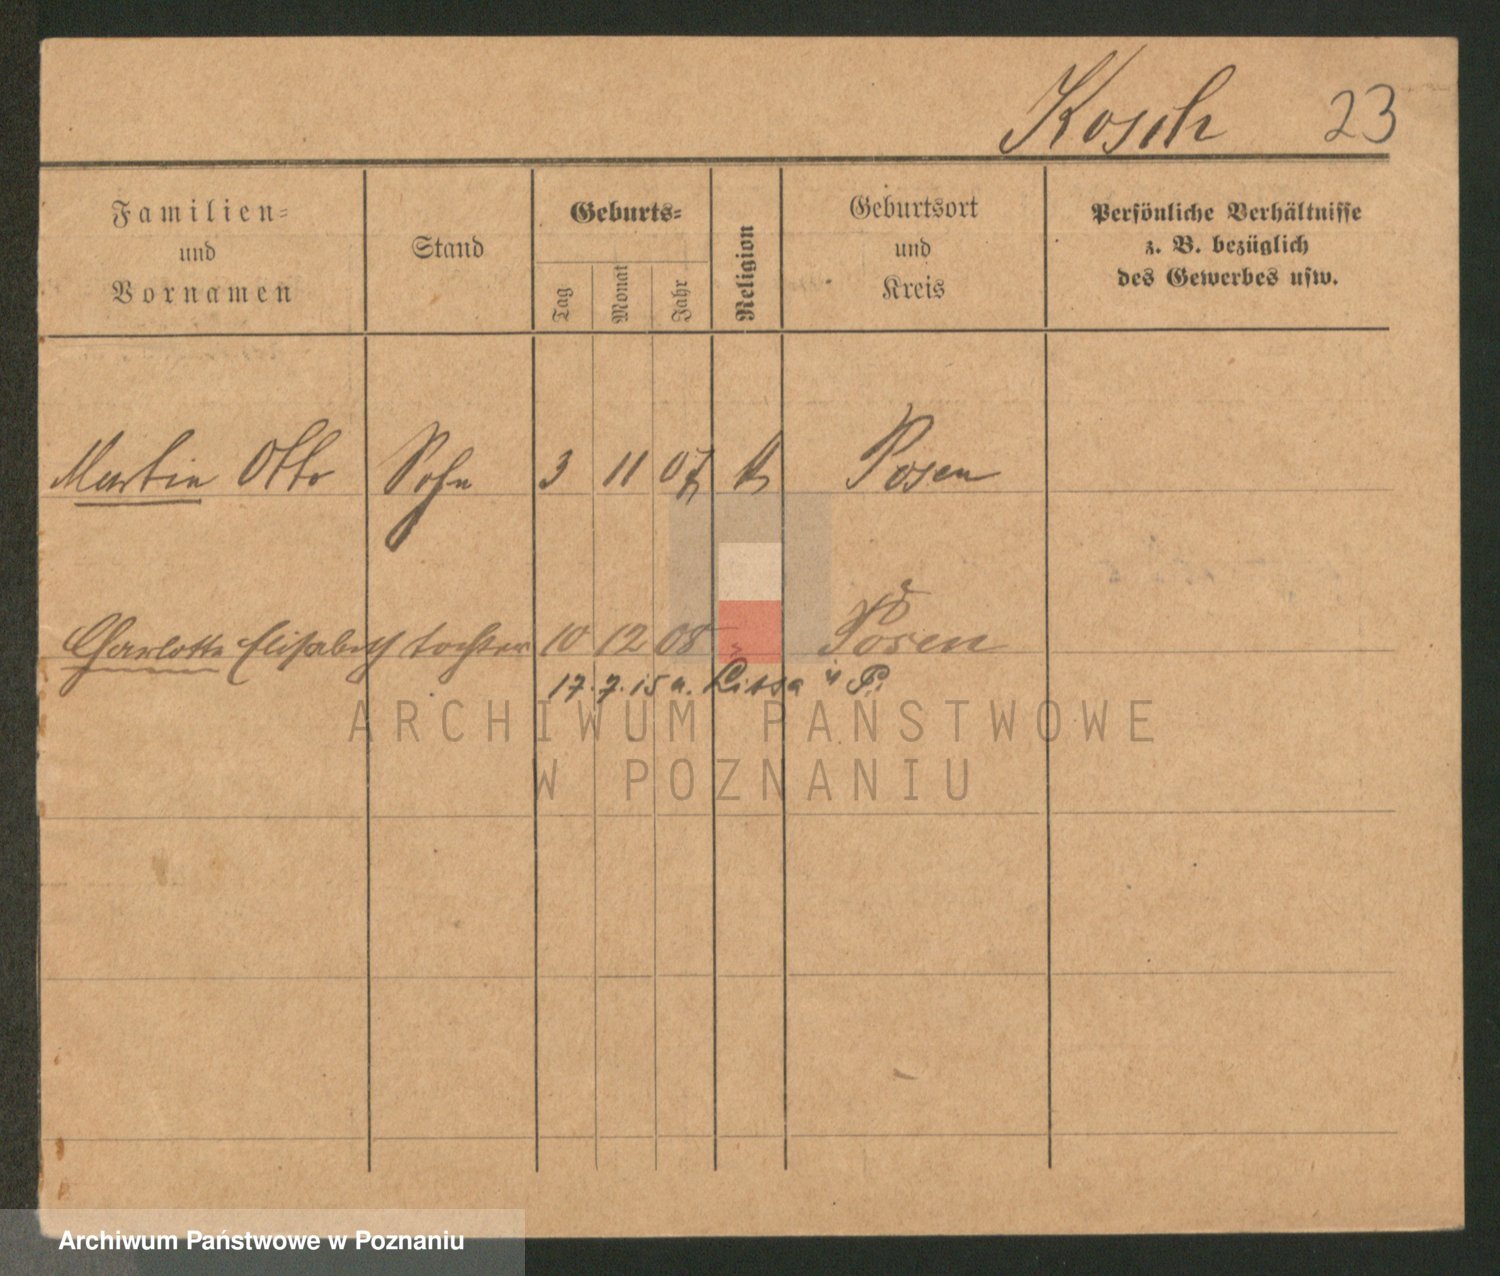 Kosch 23
Familien= und Vornamen
Stand
Geburts=
Tag Monat Jahr
Religion
Geburtsort und Kreis
Persönliche Verhältnisse
z. B. bezüglich
des Gewerbes usw.
Martin Otto Sohn 3 11 07 Posen
Charlotte Elisabeth Tochter 10 12 08 " Posen
17.7.15 n. Lissa i/ P.
ARCHIWUM PAŃSTWOWE
W POZNANIU
Archiwum Państwowe w Poznaniu